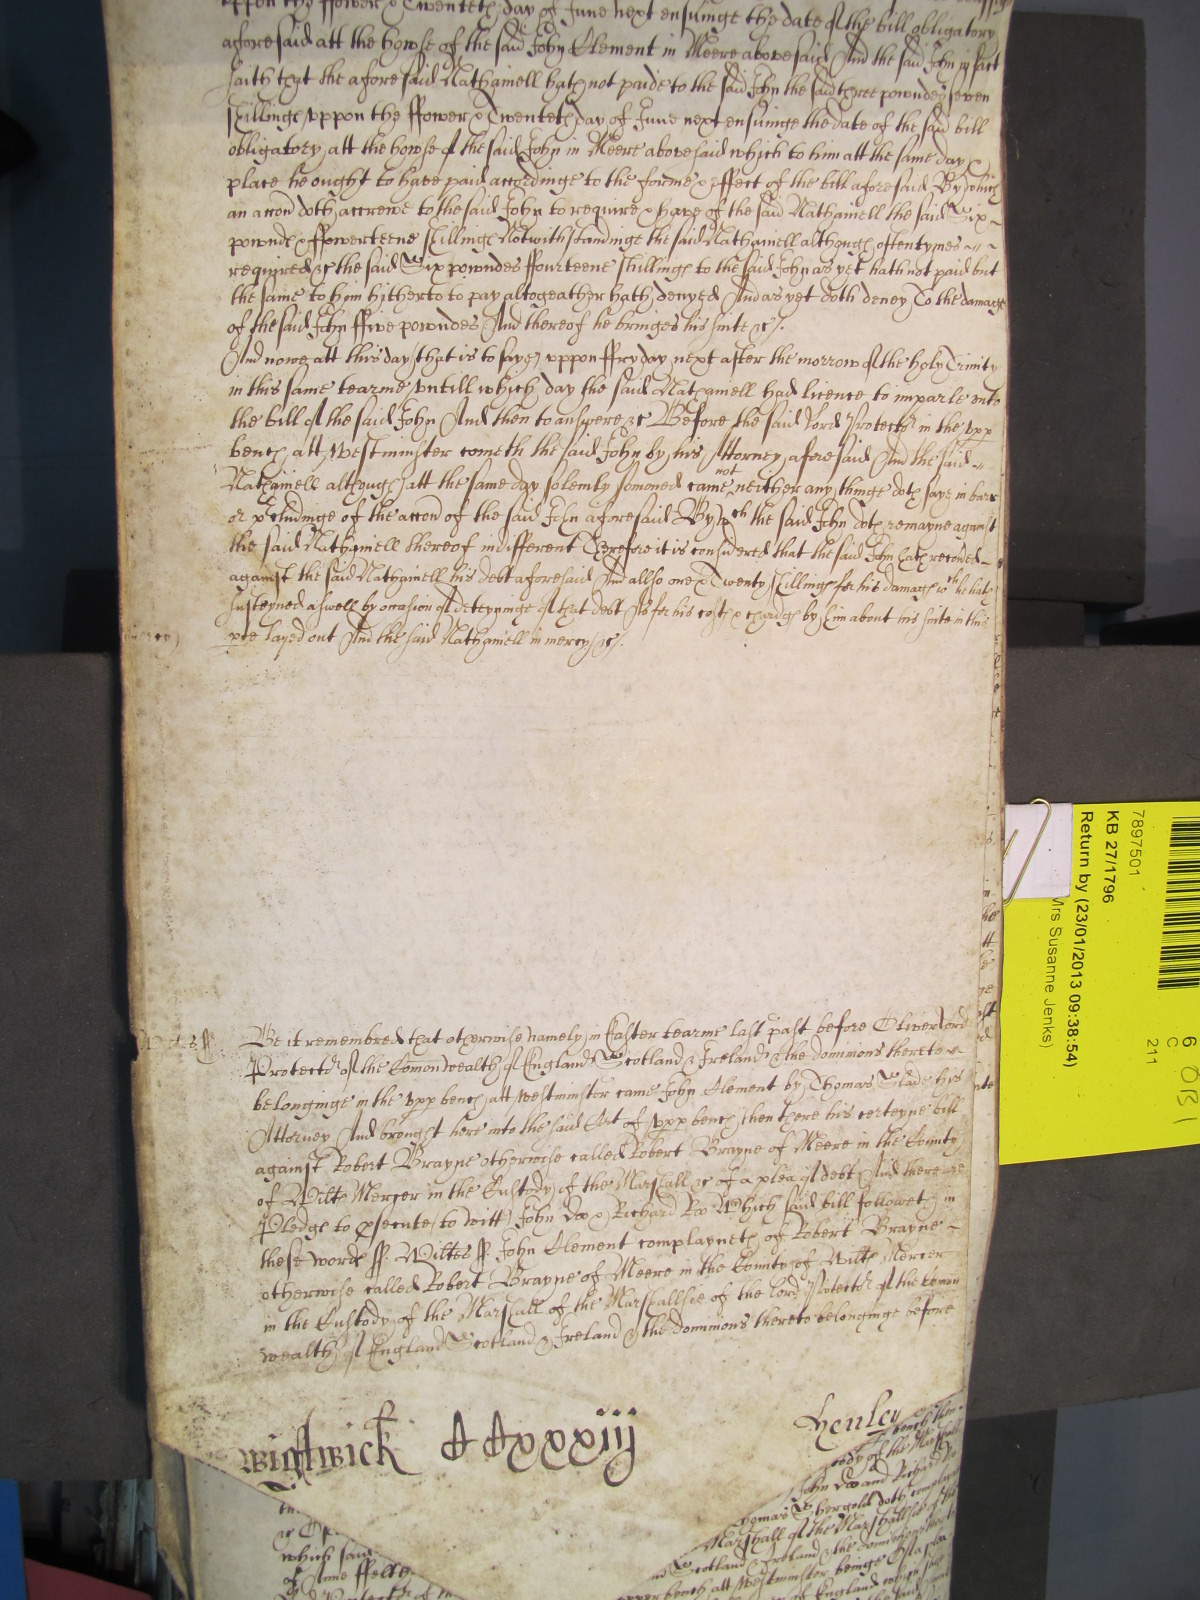 uppon the ffower & Twenteth day of June next ensuinge the date of the bill obligatory
aforesaid att the howse of the said John Clement in Meere abovesaid And the said John in fact
saith that the aforesaid Nathaniell hath not paide to the said John the said three powndes seven
shillinges uppon the ffower & Twenteth day of June next ensuinge the date of the said bill
obligatory att the howse of the said John in Meere abovesaid which to him att the same day &
place he ought to have paid accordinge to the forme & effect of the bill aforesaid By which
an accon doth accrewe to the said John to require & have of the said Nathaniell the said Six
powndes & ffowerteene shillinges Notwithstandinge the said Nathaniell although oftentymes
required &c the said Six powndes ffourteene shillinges to the said John as yet hath not paid but
the same to him hitherto to pay altogeather hath denyed And as yet doth deney To the damage
of the said John ffive powndes And thereof he bringes his suite &c.
And nowe att this day that is to saye uppon ffryday next after the morrow of the holy Trinity
in this same tearme untill which day the said Nathaniell had licence to imparle unto
the bill of the said John And then to answere &c Before the said Lord Protector in the upp
bench att Westminster cometh the said John by his Attorney aforesaid And the said
Nathaniell although att the same day solemly somoned came not neither any thinge doth saye in barr
or pcludinge of the accon of the said John aforesaid By wch the said John doth remayne against
the said Nathaniell thereof indifferent Therefore it is considered that the said John hath recoved
against the said Nathaniell his debt aforesaid And allso one & Twenty shillinges for his damages wch he hath
susteyned aswell by occasion of deteyninge of that debt As for his costes & chardges by him about his suite in this
pte layed out And the said Nathaniell in mercy &c.
mercy
Wiltes ss Be it remembred that otherwise namely in Easter tearme last past before Oliver Lord
Protector of the Comonwealth of England Scotland & Ireland & the dominions thereto
belonginge in the upp bench att Westminster came John Clement by Thomas Slade his
Attorney And brought here into the said Cort of upp bench then there his certeyne bill
against Robert Brayne otherwise called Robert Brayne of Meere in the County
of Wiltes Mercer in the Custody of the Marshall &c of a plea of debt And there are
Pledges to psecute to witt John Doo & Richard Roo Which said bill followeth in
these wordes ss Wiltes ss John Clement complayneth of Robert Brayne
otherwise called Robert Brayne of Meere in the County of Wiltes Mercer
in the Custody of the Marshall of the Marshallsie of the Lord Protector of the Comon
wealth of England Scotland & Ireland & the dominions thereto belonginge before
Wightwick CCxxxiij Henley
bench then
Custody of the Marshall
John Doo and Richard Roo
Thomas Shergold doth complayne
Marshall of the Marshallsie of the
Scotland & Ireland & the dominions
which said upper bench att Westminster beinge Of a plea
of Anne ffell of England which
7897501
KB 27/1796
Return by (23/01/2013 09:38:54)
Mrs Susanne Jenks)
6
C
211